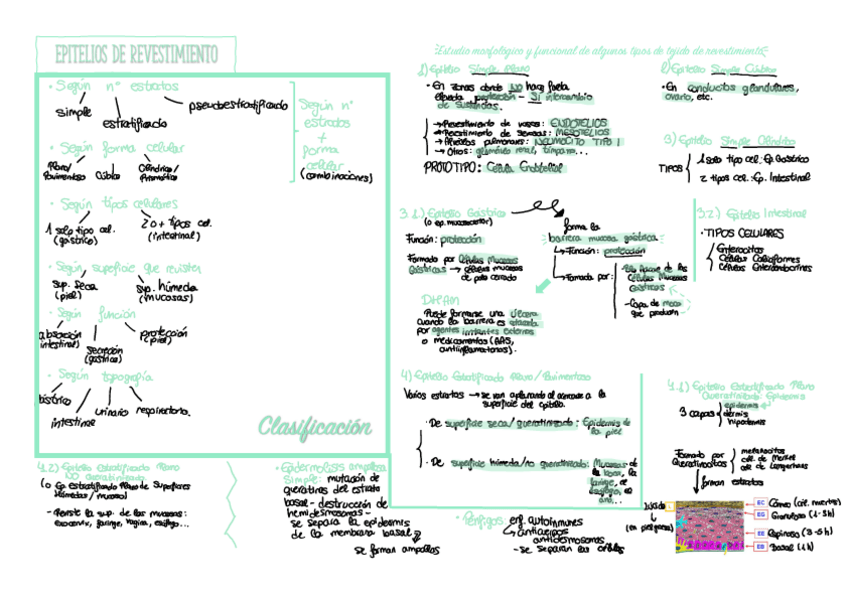 EPITELIOS DE REVESTIMIENTO
· Según nº estratos
simple
estratificado
pseudoestratificado
· Según forma celular
Plano/
Pavimentoso
Cúbico
Cilíndrico/
Prismático
Según nº
estratos
+
forma
celular
(combinaciones)
· Según tipos celulares
1 solo tipo cel.
(gástrico)
2 o + tipos cel.
(intestinal)
· Según superficie que revisten
sup. seca
(piel)
sup. húmeda
(mucosas)
· Según función
absorción
intestinal)
secreción
(gástrica)
protección
(piel)
· Según topografía
intestinal
urinario
respiratorio.
Clasificación
Estudio morfológico y funcional de algunos tipos de tejido de revestimiento
1) Epitelio Simple Plano
· En zonas donde NO hace falta
elevada protección - SÍ intercambio
de sustancias.
→ Revestimiento de vasos: ENDOTELIOS
→ Revestimiento de serosas: MESOTELIOS
→ Alveolos pulmonares: NEUMOCITO TIPO I
→ Otros: glomérulo renal, tímpano...
PROTOTIPO: Célula Endotelial
2) Epitelio Simple Cúbico
· En conductos glandulares,
ovario, etc.
3) Epitelio Simple Cilíndrico
TIPOS
1 solo tipo cel: Ep. Gástrico
2 tipos cel: Ep. Intestinal
3.1) Epitelio Gástrico
Función: protección
Formado por Células Mucosas
Gástricas → células mucosas
de polo cerrado
forma la
barrera mucosa gástrica
→ Función: protección
→ Formada por:
Células Mucosas
Gástricas
- Capa de moco
que producen
Puede formarse una úlcera
cuando la barrera es
por agentes irritantes externos
o medicamentos (AAS,
antiinflamatorios).
3.2) Epitelio Intestinal
· TIPOS CELULARES
Enterocitos
Células Caliciformes
Células Enteroendocrinas
4) Epitelio Estratificado Plano/Pavimentoso
Varios estratos → se van aplanando al acercarse a la
superficie del epitelio.
· De superficie seca/queratinizado: Epidermis de
la piel
· De superficie húmeda/no queratinizado: Mucosas de
la boca, la
faringe, el
esófago, el
ano...
4.1) Epitelio Estratificado Plano
Queratinizado: Epidermis
3 capas
epidermis
dermis
hipodermis
Formado por
Queratinocitos
melanocitos
cél. de Merkel
cél. de Langerhans
forman estratos
Lúcido
(en piel gruesa)
EC
Córneo (cél. muertas)
EG
Granuloso (1-3h)
EE
Espinoso (3-5h)
EB
Basal (1h)
4.2) Epitelio Estratificado Plano
NO queratinizado
(o Ep. estratificado Plano de Superficies
Húmedas/mucosa)
- Reviste la sup. de las mucosas:
exocérvix, faringe, vagina, esófago...
· Epidermolisis ampollosa
Simple: mutación de
queratinas del estrato
basal - destrucción de
hemidesmosomas -
se separa la epidermis
de la membrana basal
se forman ampollas
· Pénfigos
enf. autoinmunes
anticuerpos
antidesmosomas
- se separan las células